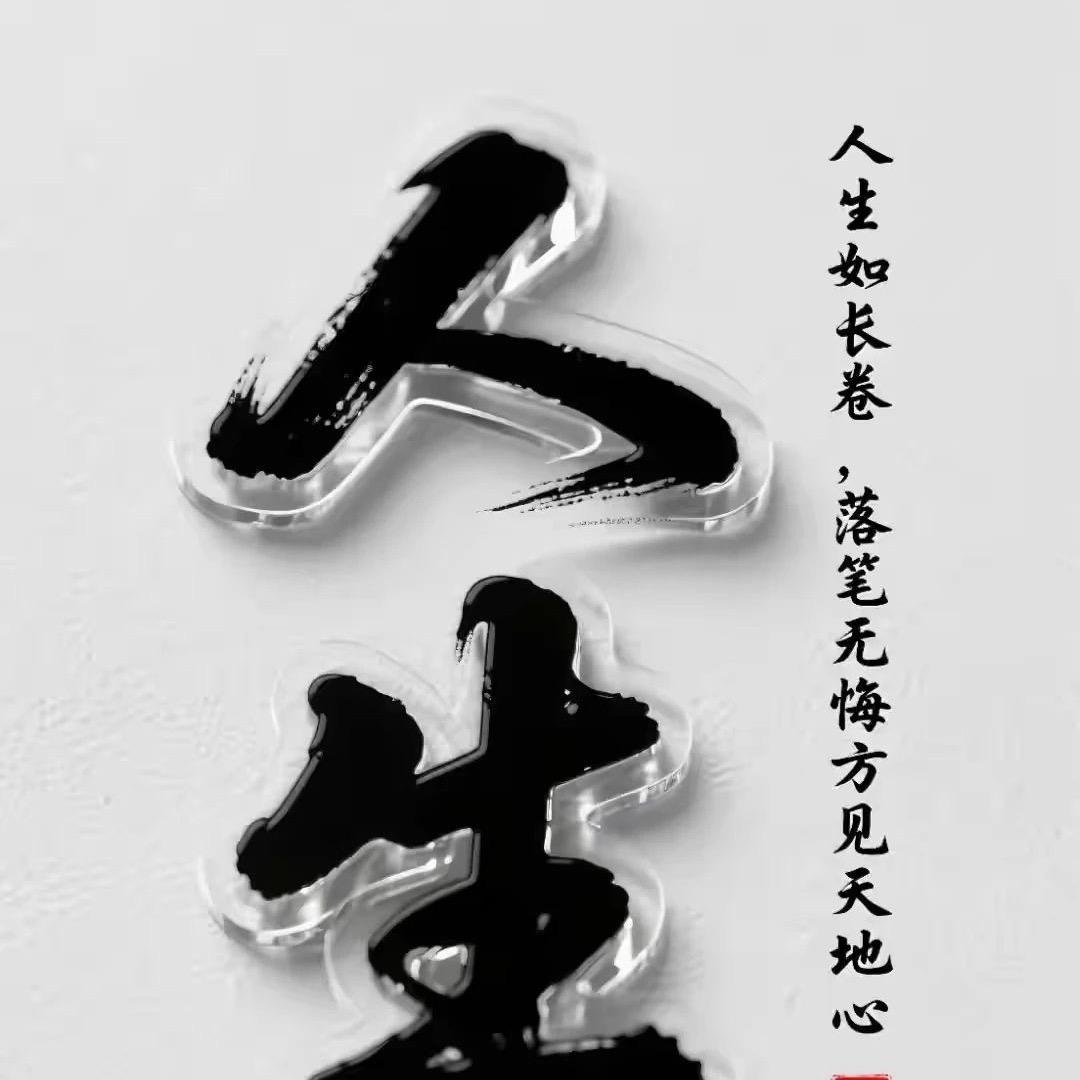 人生如长卷，落笔无悔方见天地心
人生